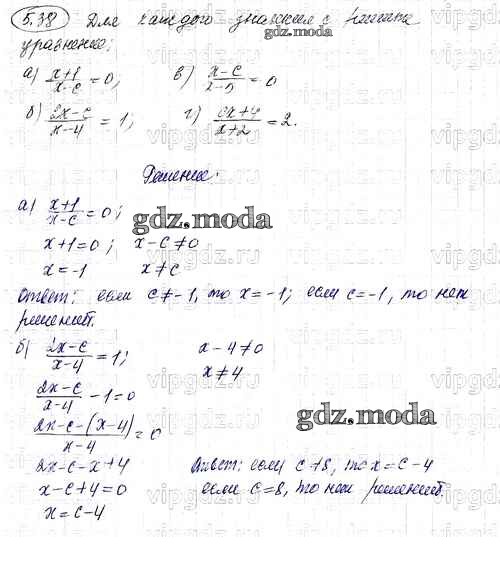 5.38 Для каждого значения с решите
уравнение:
а) x+1/x-c = 0; в) x-c/x-5 = 0
б) 2x-c/x-4 = 1; г) cx+4/x+2 = 2.
Решение:
а) x+1/x-c = 0;
x+1=0; x-c≠0
x=-1 x≠c
Ответ: если c≠-1, то x=-1; если c=-1, то нет
решений.
б) 2x-c/x-4 = 1; x-4≠0
x≠4
2x-c/x-4 -1=0
2x-c-(x-4)/x-4 = 0
2x-c-x+4 Ответ: если c≠8, то x=c-4
x-c+4=0 если c=8, то нет решений.
x=c-4
gdz.moda
gdz.moda
vipgdz.ru